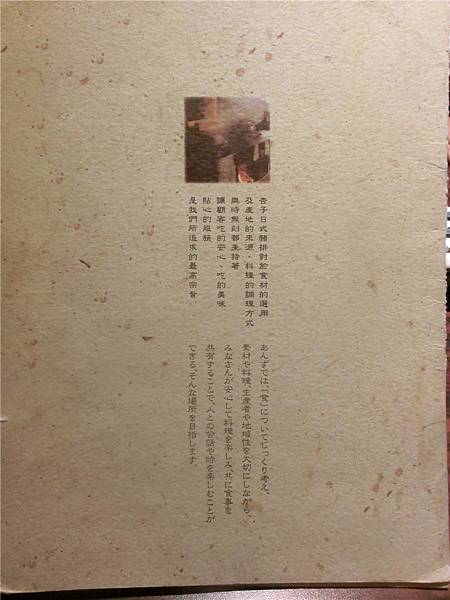 杏子日式豬排對於食材的選用
及產地的來源、料理的調理方式
無時無刻都秉持著
讓顧客吃的安心、吃的美味
貼心的服務
是我們所追求的最高宗旨
あんずでは、「食」についてじっくり考え、
素材や料理、生産者や地域性を大切にしながら、
みなさんが安心して料理を楽しみ、共に食事を
共有することで、人との会話や時を楽しむことが
できる、そんな場所を目指します。